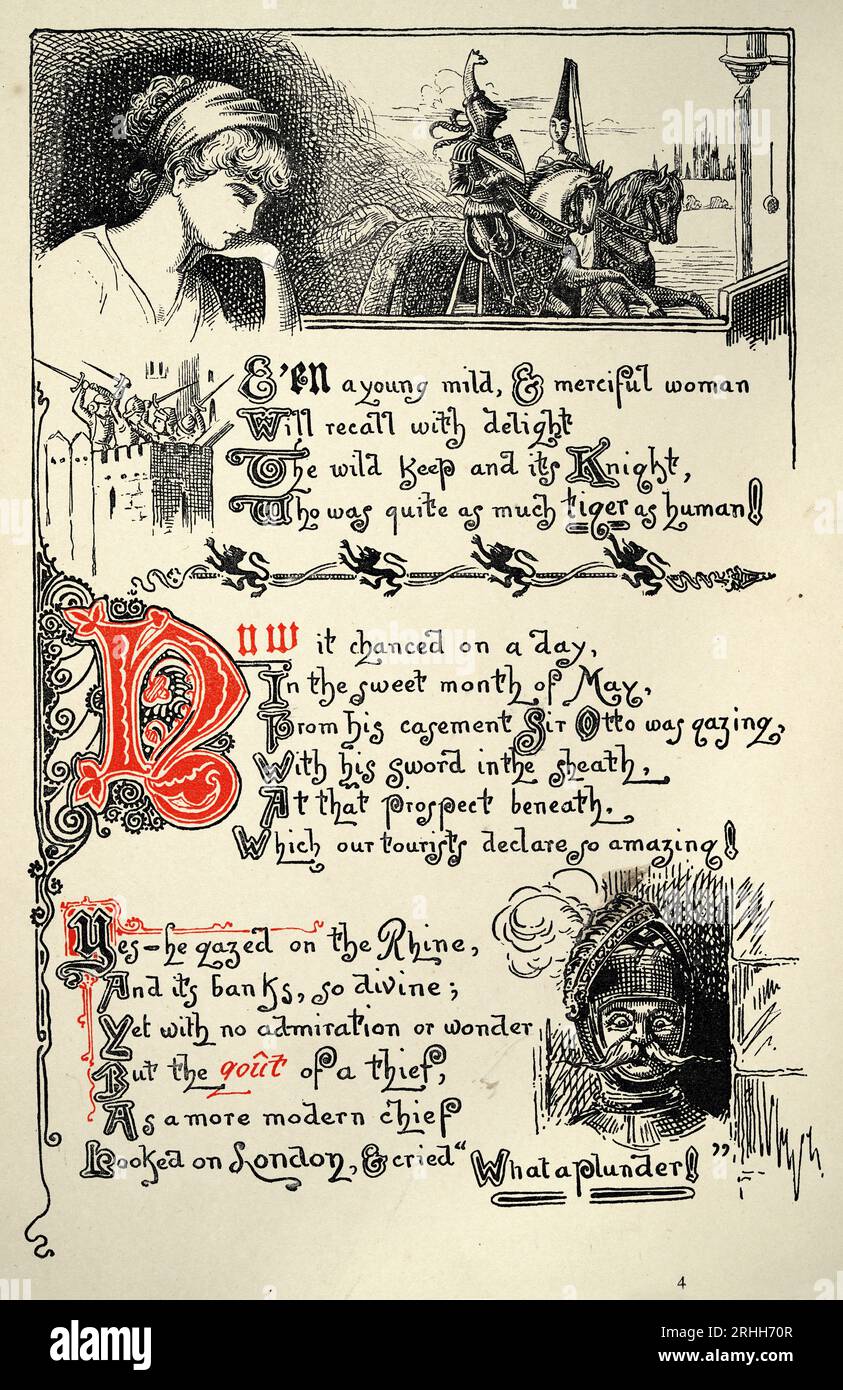 E'en a young mild, & merciful woman
Will recall with delight
The wild keep and its Knight,
Who was quite as much tiger as human!
Now it chanced on a day,
In the sweet month of May,
From his casement Sir Otto was gazing,
With his sword in the sheath,
At that prospect beneath,
Which our tourists declare so amazing!
Yes—he gazed on the Rhine,
And its banks, so divine;
Yet with no admiration or wonder
But the goût of a thief,
As a more modern chief
Looked on London, & cried "What a plunder!"
4
alamy
Image ID: 2RHH70R
www.alamy.com